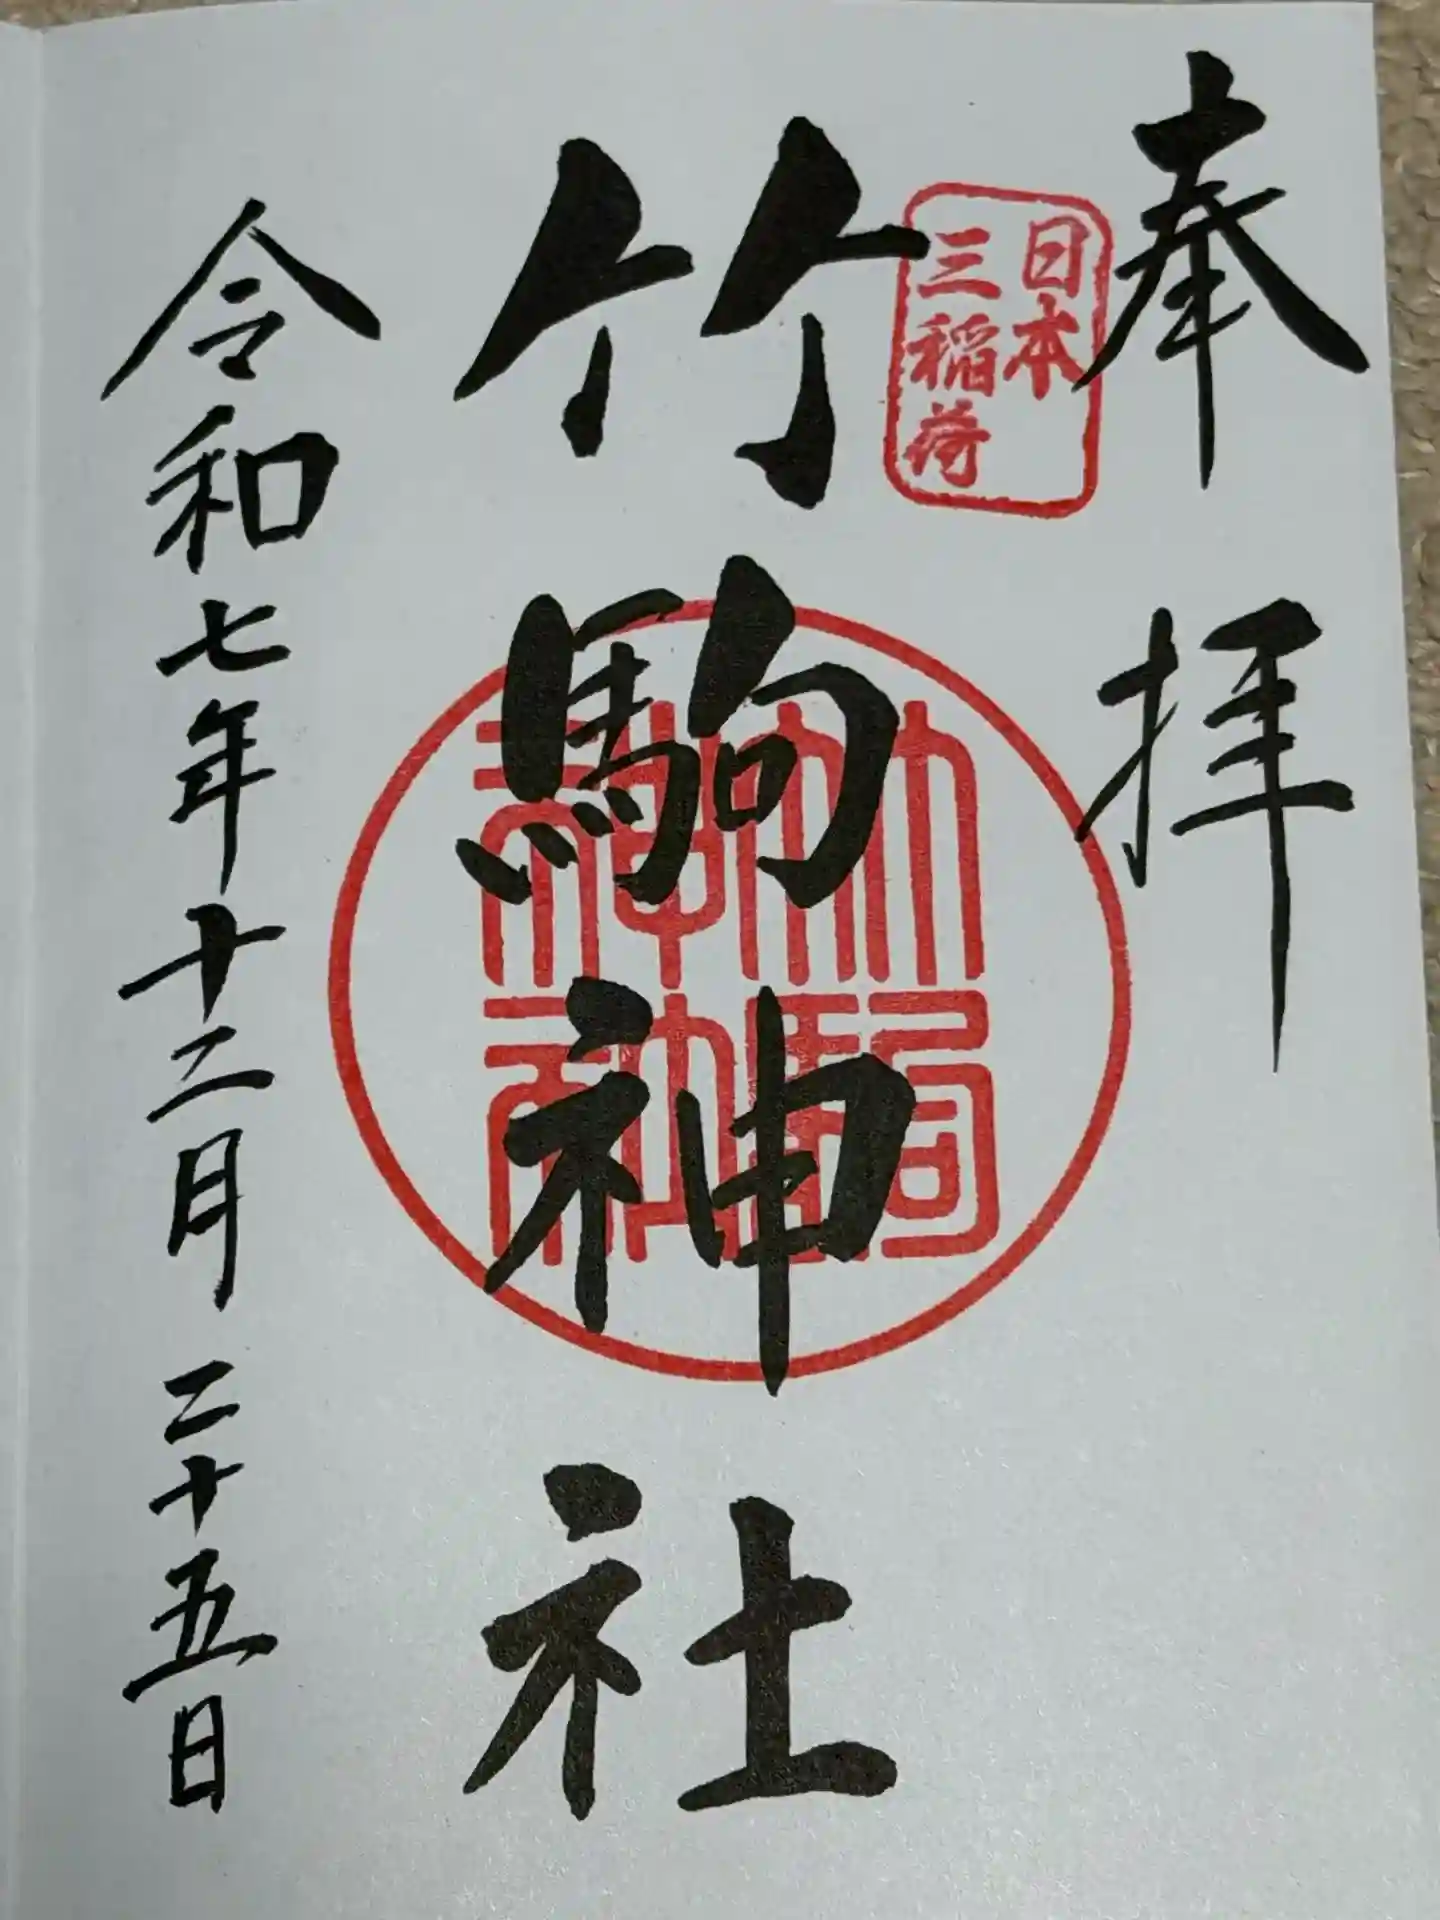 奉拝
日本
三稲荷
竹駒神社
竹駒
神社
令和七年十二月二十五日